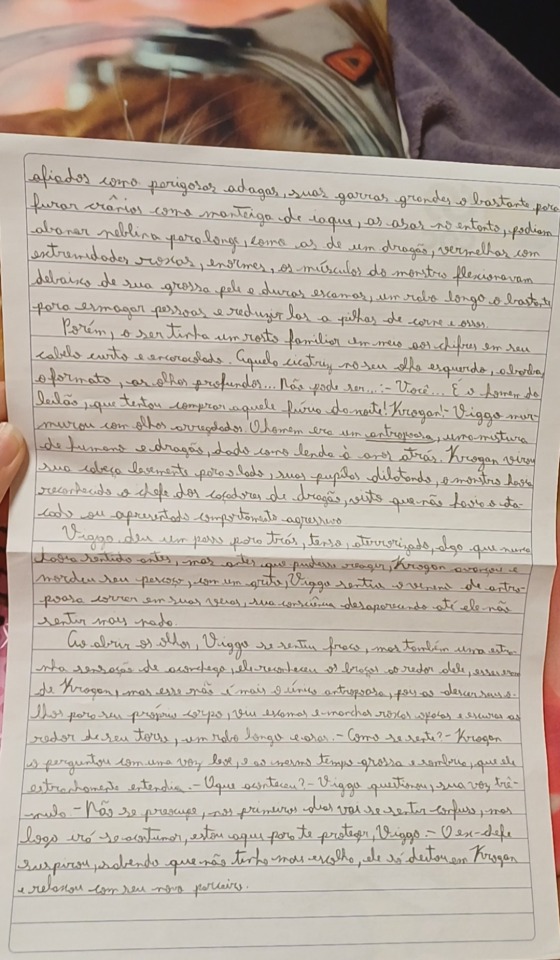 afiados como perigosas adagas, suas garras grandes o bastante para
furar crânios como manteiga de iaque, as asas no entanto, podiam
abanar neblina para longe, como as de um dragão, vermelhas com
extremidades roxas, enormes, os músculos do monstro flexionavam
debaixo de sua grossa pele e duras escamas, um rabo longo o bastante
para esmagar pessoas e reduzi-las a pilhas de carne e ossos.
Porém, o ser tinha um rosto familiar em meio aos chifres em seu
cabelo curto e encaracolado. Aquela cicatriz no seu olho esquerdo, a barba,
o formato, os olhos profundos... Não pode ser...:- Você... É o homem do
leilão, que tentou comprar aquele fúria da noite! Krogan!- Viggo mur-
murou com olhos arregalados. O homem era um antroposa, uma mistura
de humano e dragão, dado como lenda à anos atrás. Krogan virou
sua cabeça levemente para o lado, suas pupilas dilatando, o monstro havia
reconhecido o chefe dos caçadores de dragão, visto que não havia o ata-
cado ou apresentado comportamento agressivo
Viggo, deu um passo para trás, tenso, aterrorizado, algo que nunca
havia sentido antes, mas antes que pudesse reagir, Krogan avançou e
mordeu seu pescoço, com um grito, Viggo sentiu o veneno de antro-
posa correr em suas veias, sua consciência desaparecendo até ele não
sentir mais nada.
Ao abrir os olhos, Viggo se sentiu fraco, mas também uma estra-
nha sensação de aconchego, ele reconheceu os braços ao redor dele, esses eram
de Krogan, mas esse não é mais o único antroposa, pois ao descer seus o-
lhos para seu próprio corpo, viu escamas e manchas roxas opacas e escuras ao
redor de seu torso, um rabo longo e asas. - Como se sente?- Krogan
o perguntou com uma voz leve, e ao mesmo tempo grossa e sombria, que ele
estranhamente entendia. - O que aconteceu?- Viggo questionou, sua voz trê-
mula - Não se preocupe, nos primeiros dias vai se sentir confuso, mas
logo irá se acostumar, estou aqui para te proteger, Viggo. - O ex-chefe
suspirou, sabendo que não tinha mais escolha, ele só deitou em Krogan
e relaxou com seu novo parceiro.